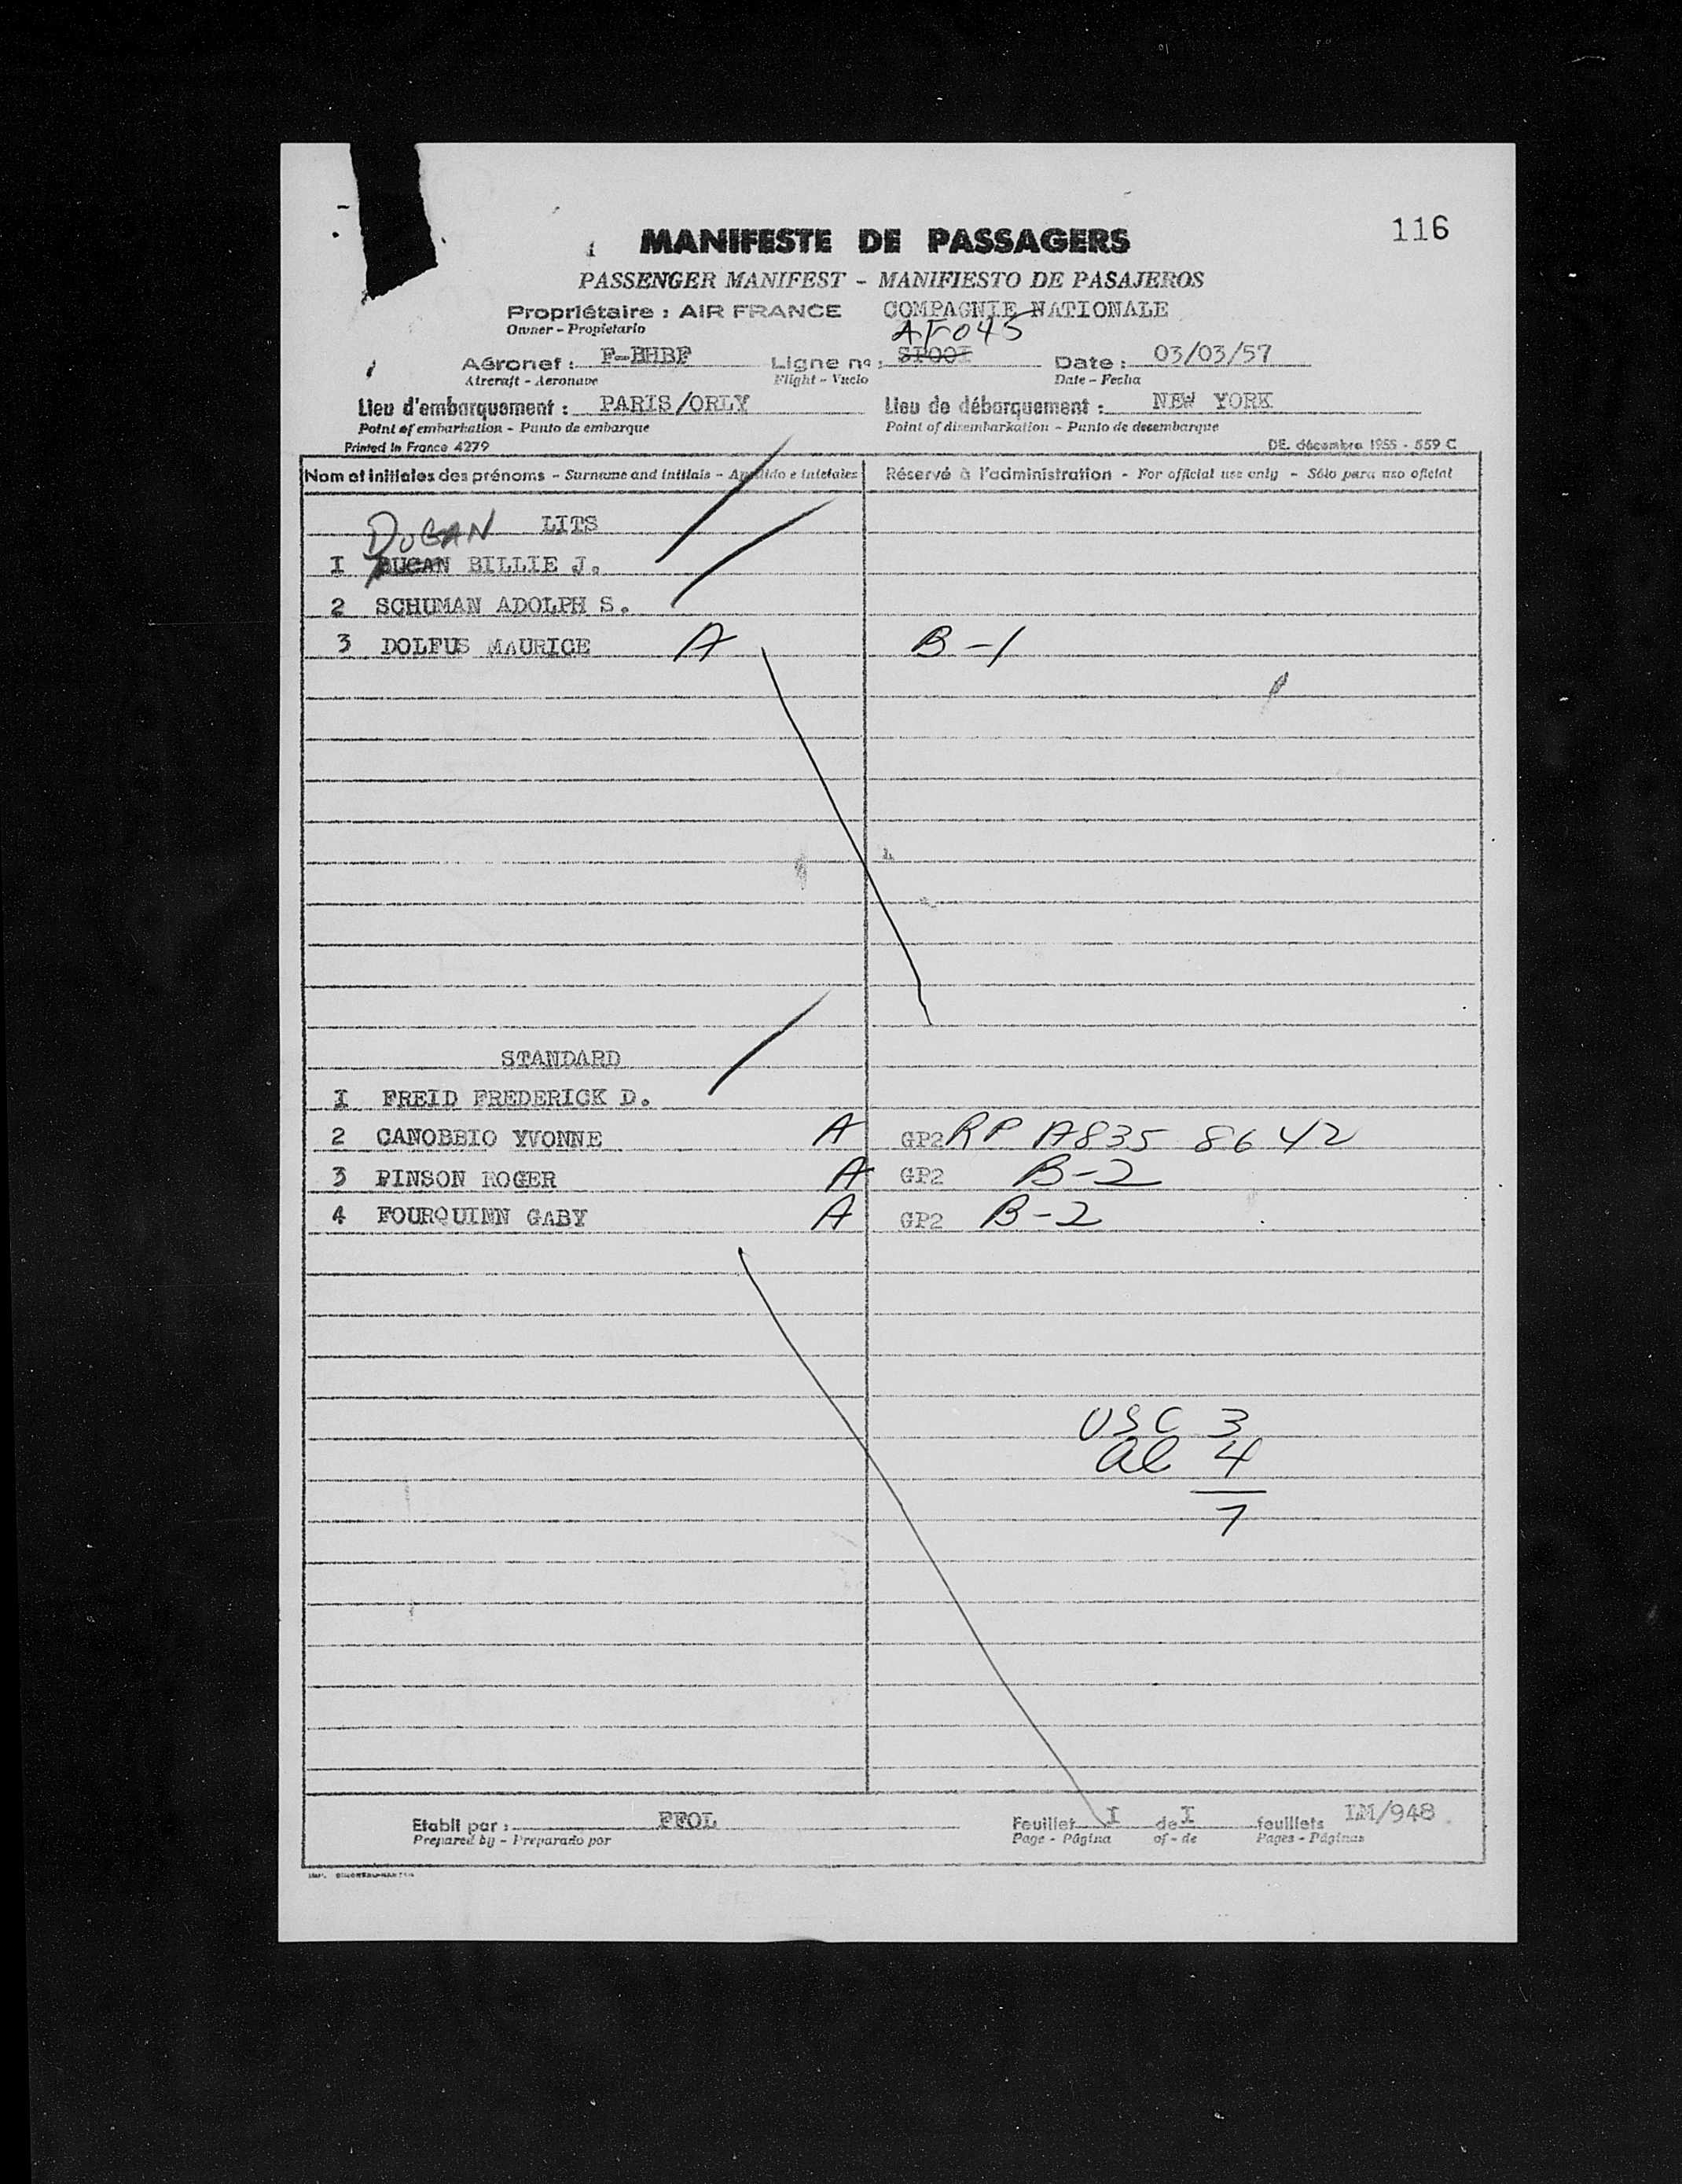 116
MANIFESTE DE PASSAGERS
PASSENGER MANIFEST - MANIFIESTO DE PASAJEROS
Propriétaire : AIR FRANCE COMPAGNIE NATIONALE
Owner - Propietario
AF045
Aéronef : F-BHBF Ligne nº : SP001 Date : 03/03/57
Aircraft - Aeronave Flight - Vuelo Date - Fecha
Lieu d'embarquement : PARIS/ORLY Lieu de débarquement : NEW YORK
Point of embarkation - Punto de embarque Point of disembarkation - Punto de desembarque
Printed in France 4279 DE. décembre 1955 - 559 C
Nom et initiales des prénoms - Surname and initials - Apellido e iniciales Réservé à l'administration - For official use only - Sólo para uso oficial
DUGAN LITS
I BILLIE J.
2 SCHUMAN ADOLPH S.
3 DOLFUS MAURICE A B-1
STANDARD
I FREID FREDERICK D.
2 CANOBBIO YVONNE A GP2 RP A835 8642
3 PINSON ROGER A GP2 B-2
4 FOURQUINN GABY A GP2 B-2
USC 3
al 4
7
Etabli par : FFOL Feuillet I de I feuillets LM/948
Prepared by - Preparado por Page - Página of - de Pages - Páginas